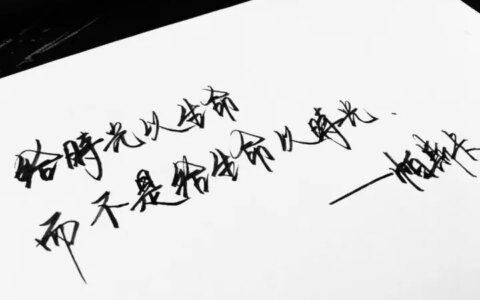 给時光以生命
而不是给生命以時光.
—帕斯卡